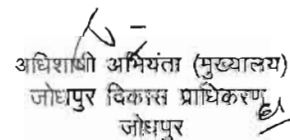 अधिशाषी अभियंता (मुख्यालय)
जोधपुर विकास प्राधिकरण
जोधपुर